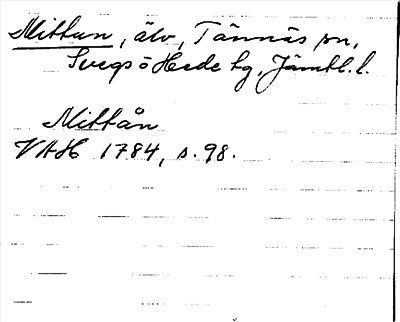 Mittan, älv, Tännäs sn,
Svegs o Hede tg, Jämtl. l.
Mittån
VAH 1784, s. 98.